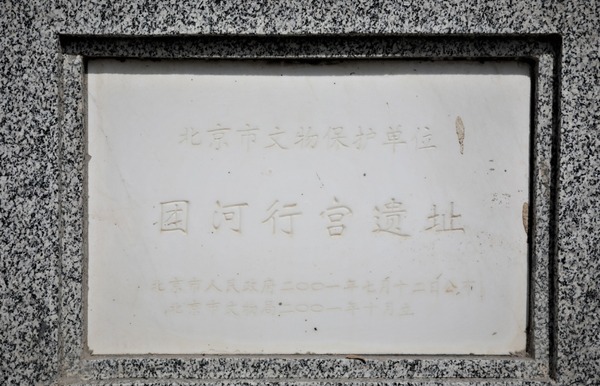 北京市文物保护单位
团河行宫遗址
北京市人民政府二〇〇一年七月十二日公布
北京市文物局二〇〇一年十月立